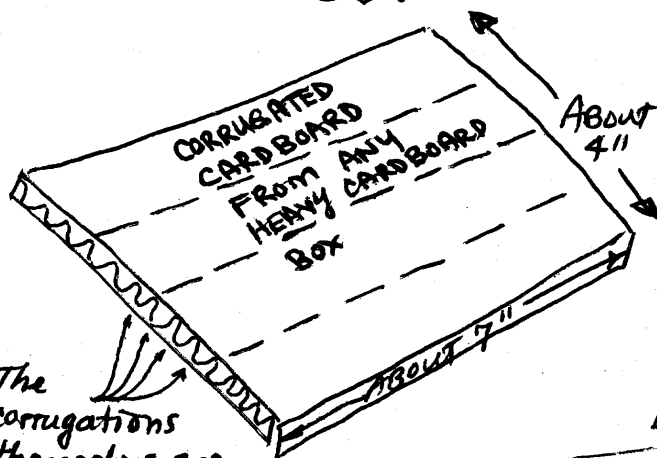 CORRUGATED
CARDBOARD
FROM ANY
HEAVY CARDBOARD
BOX
ABOUT
4"
ABOUT 7"
The
corrugations